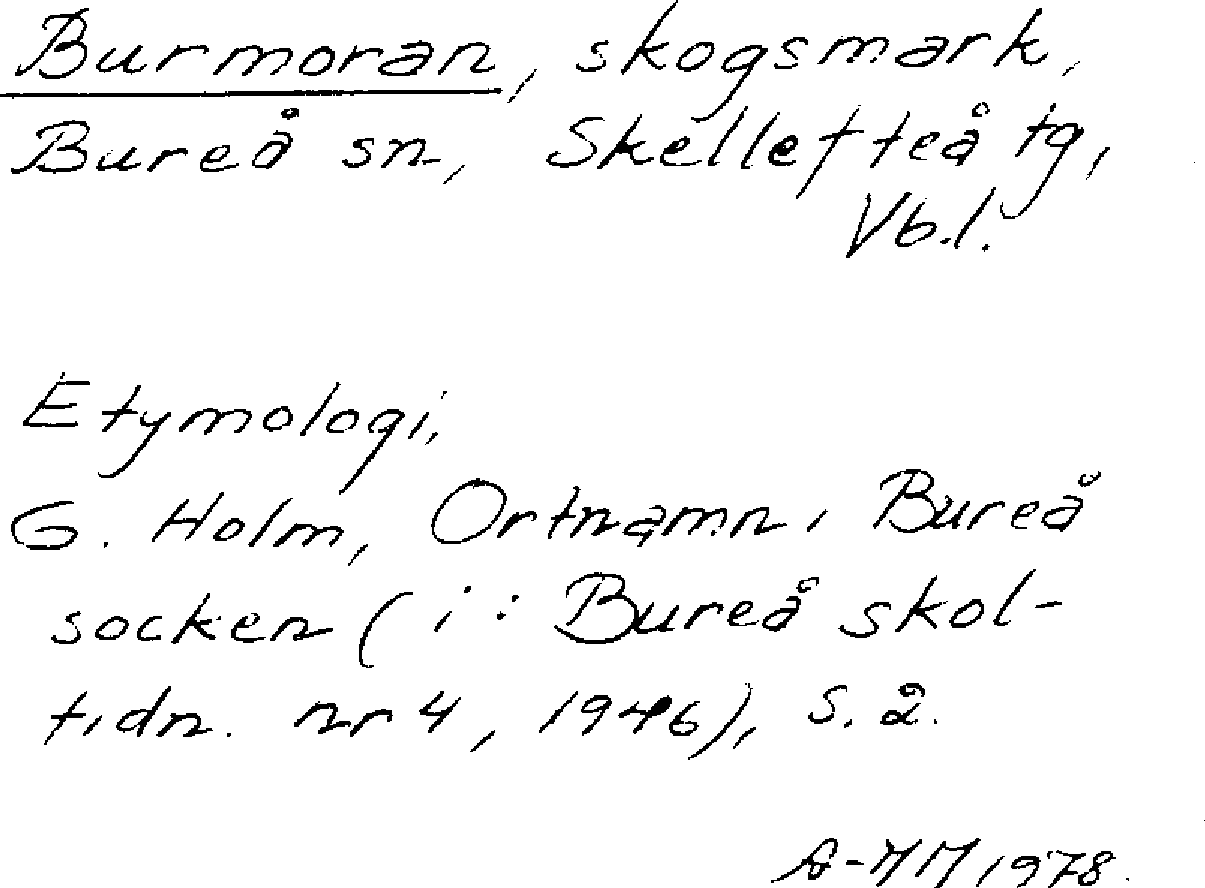 Burmoran, skogsmark,
Bureå sn, Skellefteå tg,
Vb.l.
Etymologi,
G. Holm, Ortnamn i Bureå
socken (i: Bureå skol-
tidn. nr 4, 1946), s. 2.
1978.